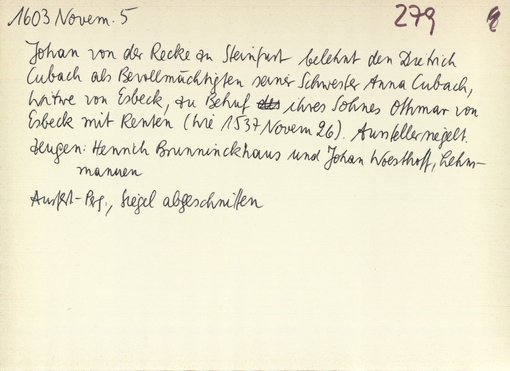 1603 Novem. 5 279
Johan von der Recke zu Steinfurt belehnt den Dietrich
Cubach als Bevollmächtigten seiner Schwester Anna Cubach,
Witwe von Esbeck, zu Behuf des ihres Sohnes Othmar von
Esbeck mit Renten (wie 1537 Novem 26). Aussteller siegelt.
Zeugen: Henrich Brunninckhaus und Johan Woesthoff, Lehns-
mannen
Ausfert.-Perg., Siegel abgeschnitten